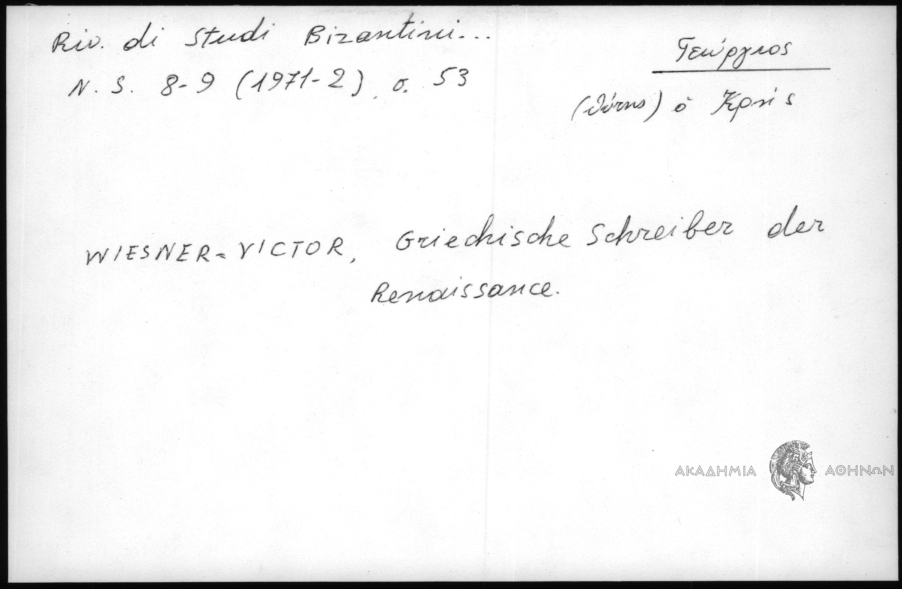 Riv. di Studi Bizantini...
N. S. 8-9 (1971-2), σ. 53
Γεώργιος
(θύτης) ὁ Κρής
WIESNER-VICTOR, Griechische Schreiber der
Renaissance.
ΑΚΑΔΗΜΙΑ ΑΘΗΝΩΝ